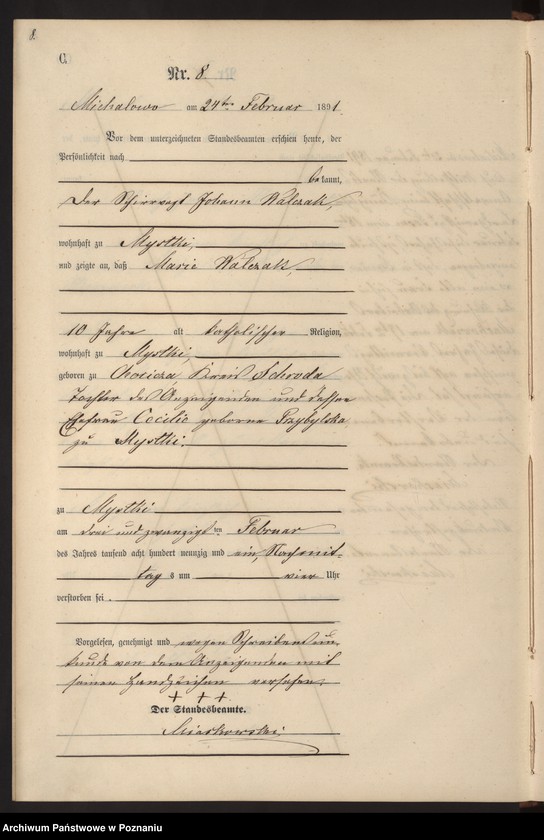 8.
C.
Nr. 8.
Michalowo am 24ten Februar 1891.
Vor dem unterzeichneten Standesbeamten erschien heute, der
Persönlichkeit nach
bekannt,
der Schirrvogt Johann Walczak,
wohnhaft zu Mystki,
und zeigte an, daß Marie Walczak,
10 Jahre alt katholischer Religion,
wohnhaft zu Mystki,
geboren zu Kreis Schroda
Tochter des Anzeigenden und dessen
Ehefrau Cecilie geborene Przybylska
zu Mystki.
zu Mystki
am drei und zwanzigsten Februar
des Jahres tausend acht hundert neunzig und ein, Nachmit-
tags um vier Uhr
verstorben sei.
Vorgelesen, genehmigt und wegen Schreibensun-
kunde von dem Anzeigenden mit
seinen Handzeichen versehen.
+ + +
Der Standesbeamte.
Miaskowski.
Archiwum Państwowe w Poznaniu